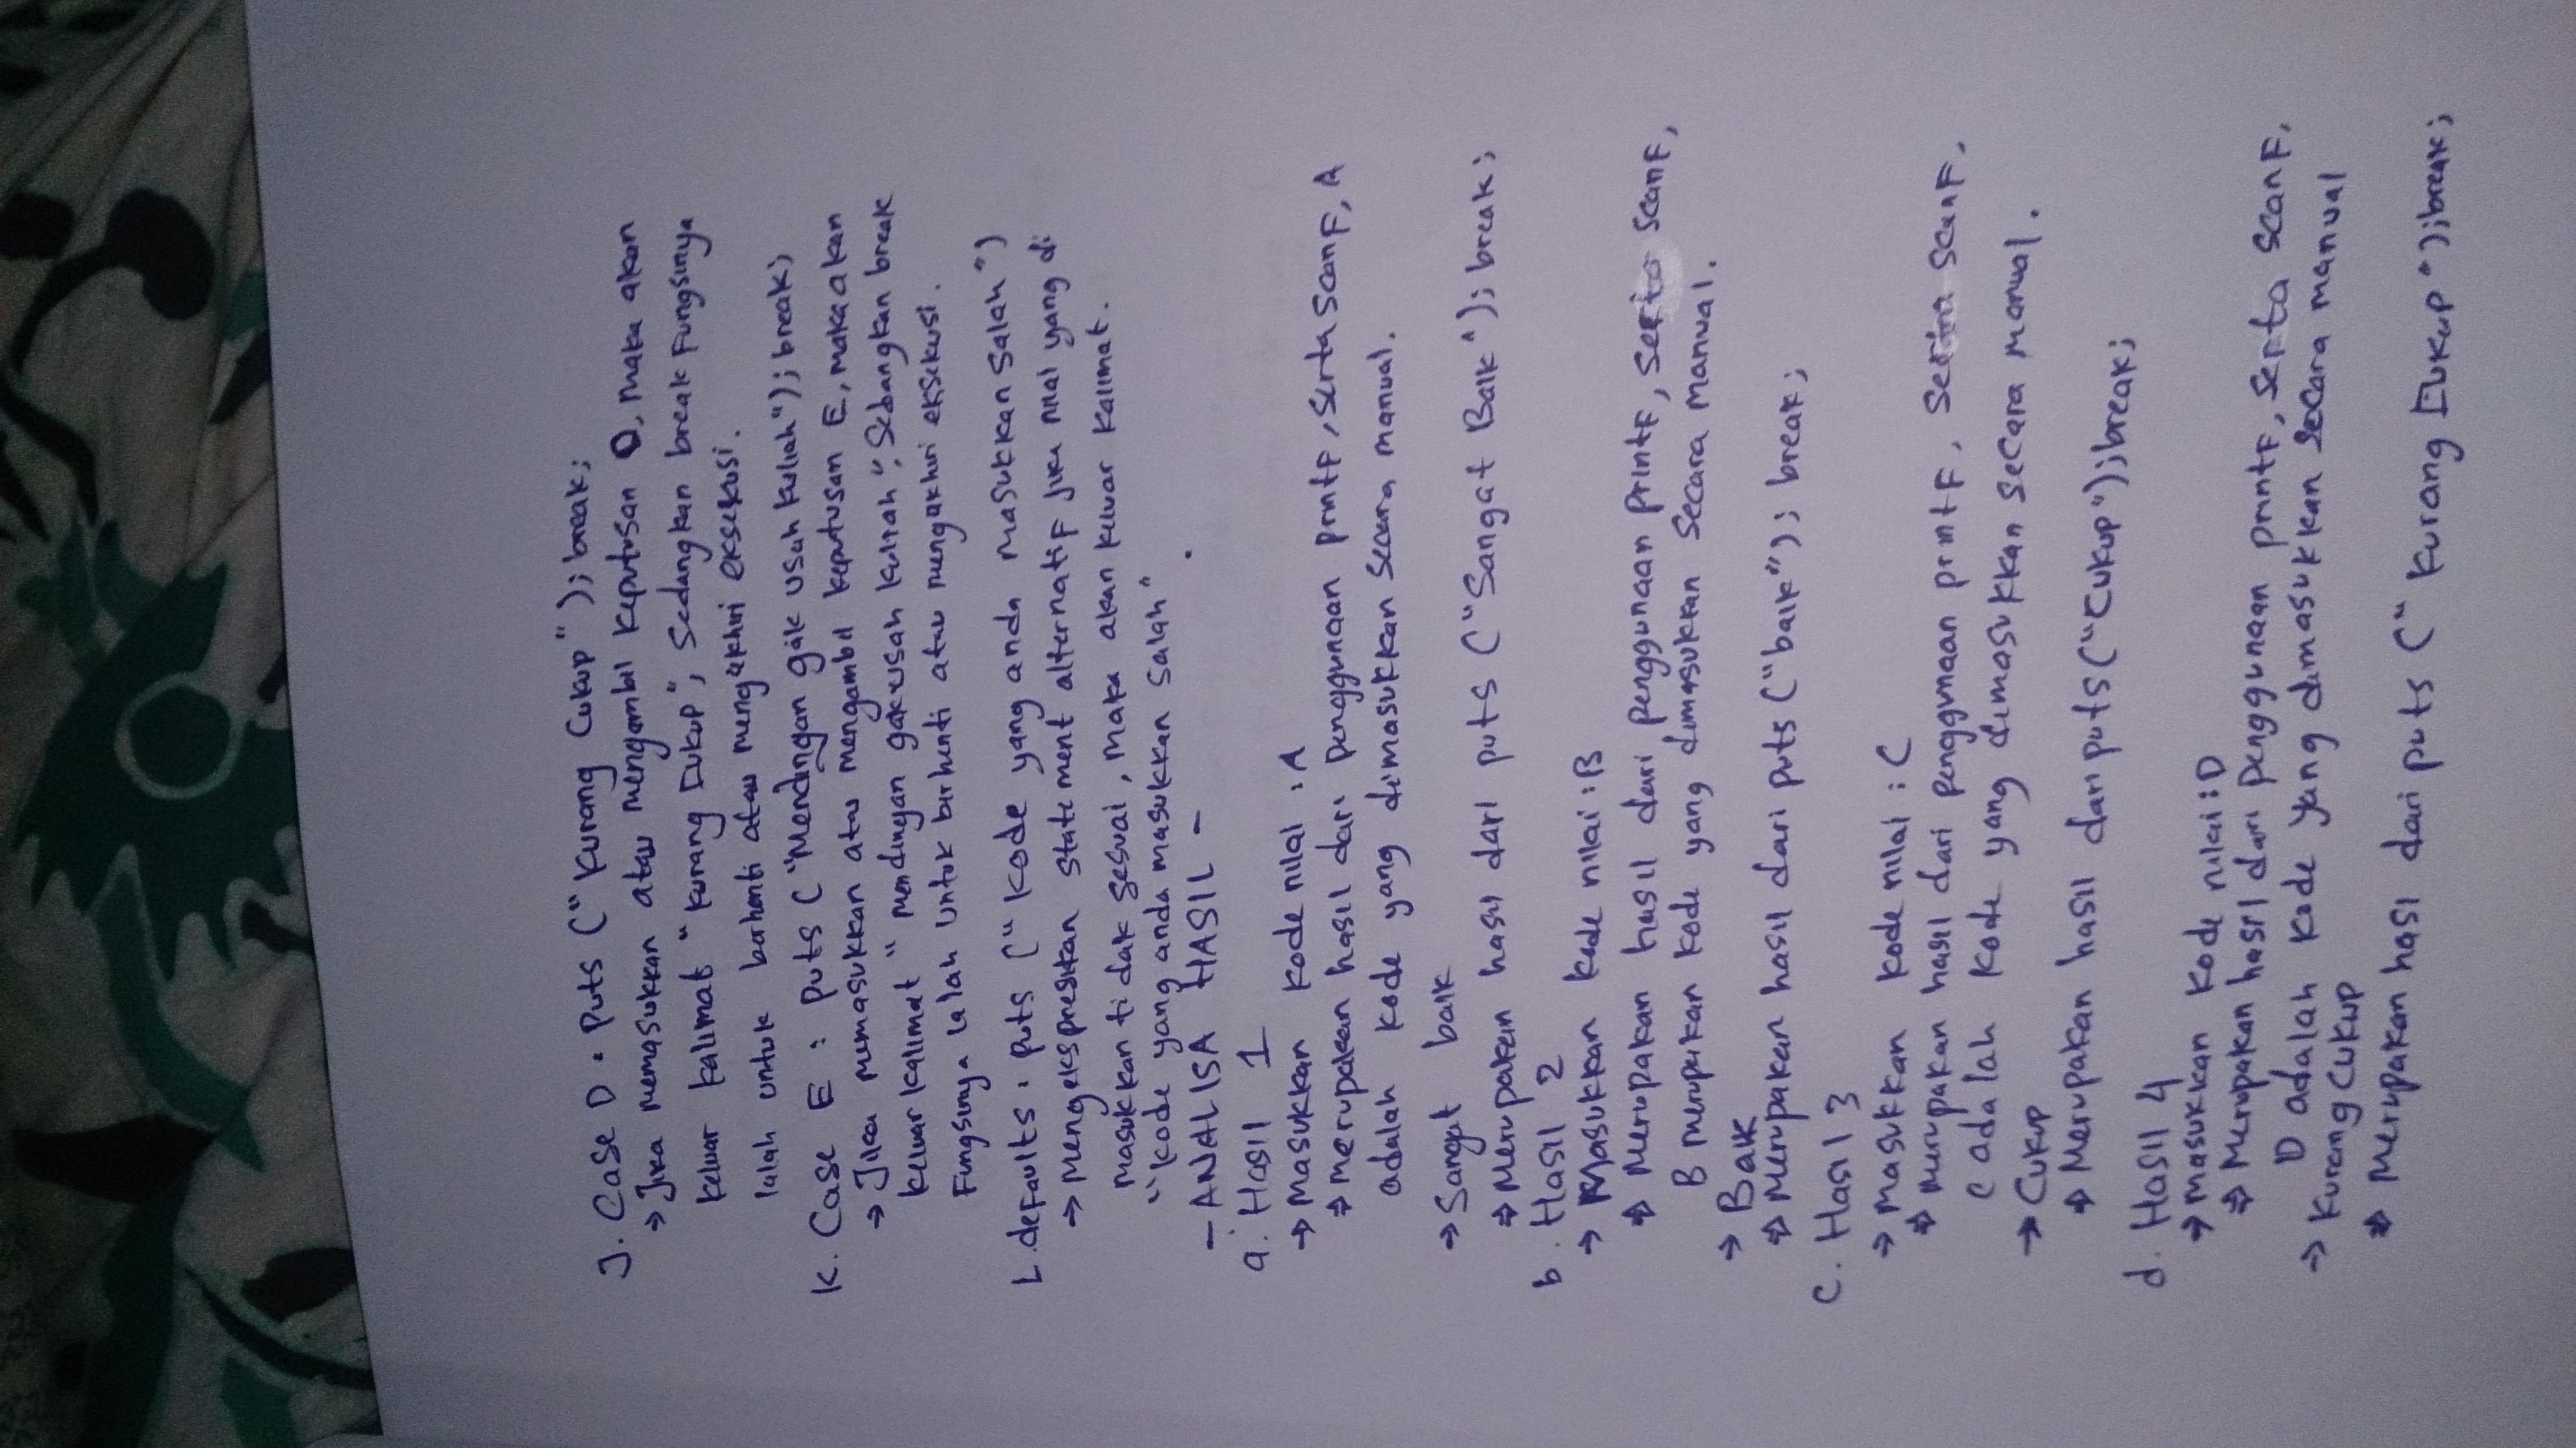 J. Case D : Puts ("Kurang Cukup"); break;
→ Jika memasukkan atau mengambil keputusan D, maka akan
keluar kalimat "kurang Cukup", Sedangkan break Fungsinya
ialah untuk berhenti atau mengakhiri eksekusi.
K. Case E : puts ("Mendingan gak usah kuliah"); break;
→ Jika memasukkan atau mengambil keputusan E, maka akan
keluar kalimat "mendingan gak usah kuliah", Sebangkan break
Fungsinya ialah Untuk berhenti atau mengakhiri eksekusi.
L. deFaults : puts ("Kode yang anda masukkan Salah")
→ Mengekspresikan Statement alternatif jika nilai yang di
masukkan tidak sesuai, maka akan keluar kalimat.
"Kode yang anda masukkan Salah"
- ANALISA HASIL -
a. Hasil 1
→ Masukkan kode nilai : A
⇒ merupakan hasil dari penggunaan printf, serta scanf, A
adalah kode yang dimasukkan Secara manual.
→ Sangat baik
⇒ Merupakan hasil dari puts ("Sangat Baik"); break;
b. Hasil 2
→ Masukkan kode nilai : B
⇒ Merupakan hasil dari penggunaan printf, serta scanf,
B merupakan kode yang dimasukkan Secara Manual.
→ Baik
⇒ Merupakan hasil dari puts ("baik"); break;
C. Hasil 3
→ Masukkan kode nilai : C
⇒ Merupakan hasil dari penggunaan printf, serta scanf,
C adalah kode yang dimasukkan secara manual.
→ Cukup
⇒ Merupakan hasil dari puts ("Cukup"); break;
d. Hasil 4
→ masukkan kode nilai : D
⇒ Merupakan hasil dari penggunaan printf, serta scanf,
D adalah kode yang dimasukkan secara manual
→ Kurang Cukup
⇒ Merupakan hasi dari puts ("Kurang Cukup"); break;